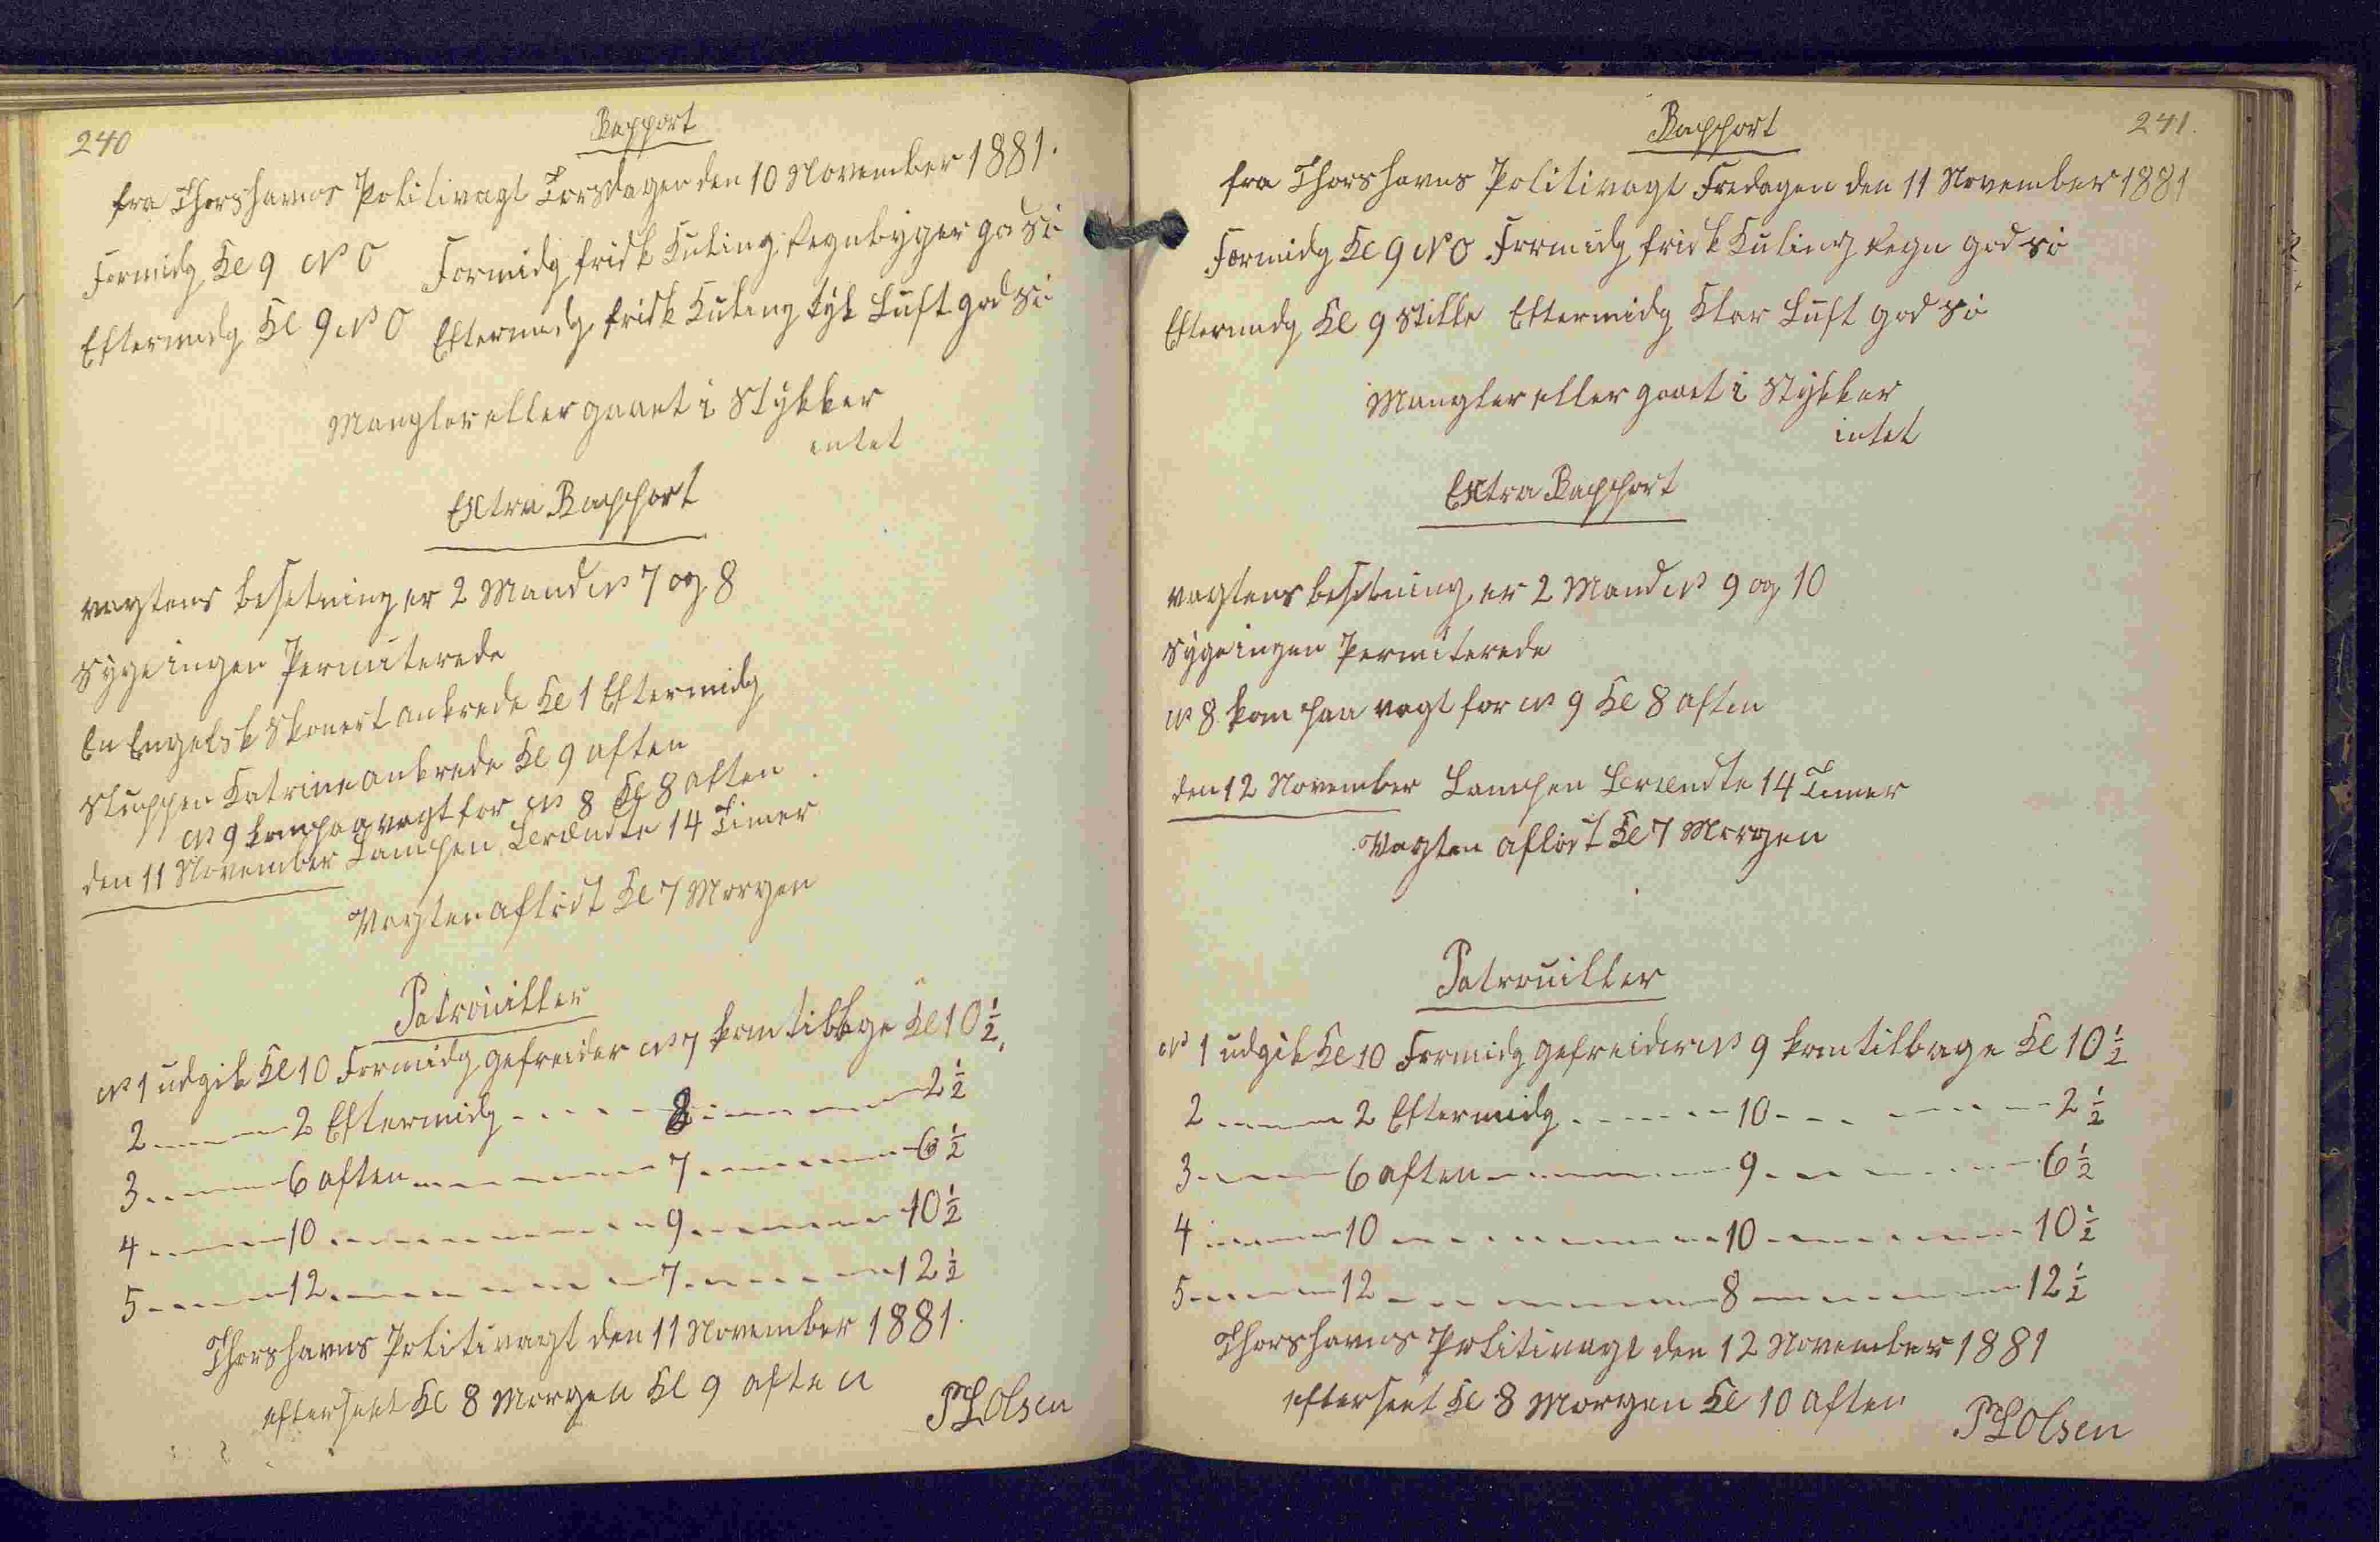 240
Rapport
fra Thorshavns Politivagt Torsdagen den 10 November 1881.
Formidg Kl 9 N O Formidg frisk Kuling Regnbyger god Si
Eftermidg Kl 9 N O Eftermidg frisk Kuling tyk Luft god Si
Mangler eller gaaet i Stykker
intet
Extra Rapport
vagtens besetning er 2 Mand No 7 og 8
Syge ingen Permiterede
En Engelsk Skonert ankrede Kl 1 Eftermidg
Sluppen Katrine ankrede Kl 9 aften
No 9 kom paa vagt for No 8 Kl 8 aften
den 11 November Lampen Brændte 14 Timer
Vagten aflöst Kl 7 Morgen
Patrouiller
No 1 udgik Kl 10 Formidg gefreider No 7 kom tilbage Kl 10 1/2.
2 2 Eftermidg 8 2 1/2
3 6 aften 7 6 1/2
4 10 9 10 1/2
5 12 7 12 1/2
Thorshavns Politivagt den 11 November 1881.
efterseet Kl 8 Morgen Kl 9 aften
Olsen
241.
Rapport
fra Thorshavns Politivagt Fredagen den 11 November 1881
Formidg Kl 9 N O Formidg frisk Kuling Regn god Si
Eftermidg Kl 9 Stille Eftermidg Klar Luft god Si
Mangler eller gaaet i Stykker
intet
Extra Rapport
vagtens besetning er 2 Mand No 9 og 10
Syge ingen Permiterede
No 8 kom paa vagt for No 9 Kl 8 aften
den 12 November Lampen Brændte 14 Timer
Vagten aflöst Kl 7 Morgen
Patrouiller
No 1 udgik Kl 10 Formidg gefreider No 9 kom tilbage Kl 10 1/2
2 2 Eftermidg 10 2 1/2
3 6 aften 9 6 1/2
4 10 10 10 1/2
5 12 8 12 1/2
Thorshavns Politivagt den 12 November 1881
efterseet Kl 8 Morgen Kl 10 aften
Olsen